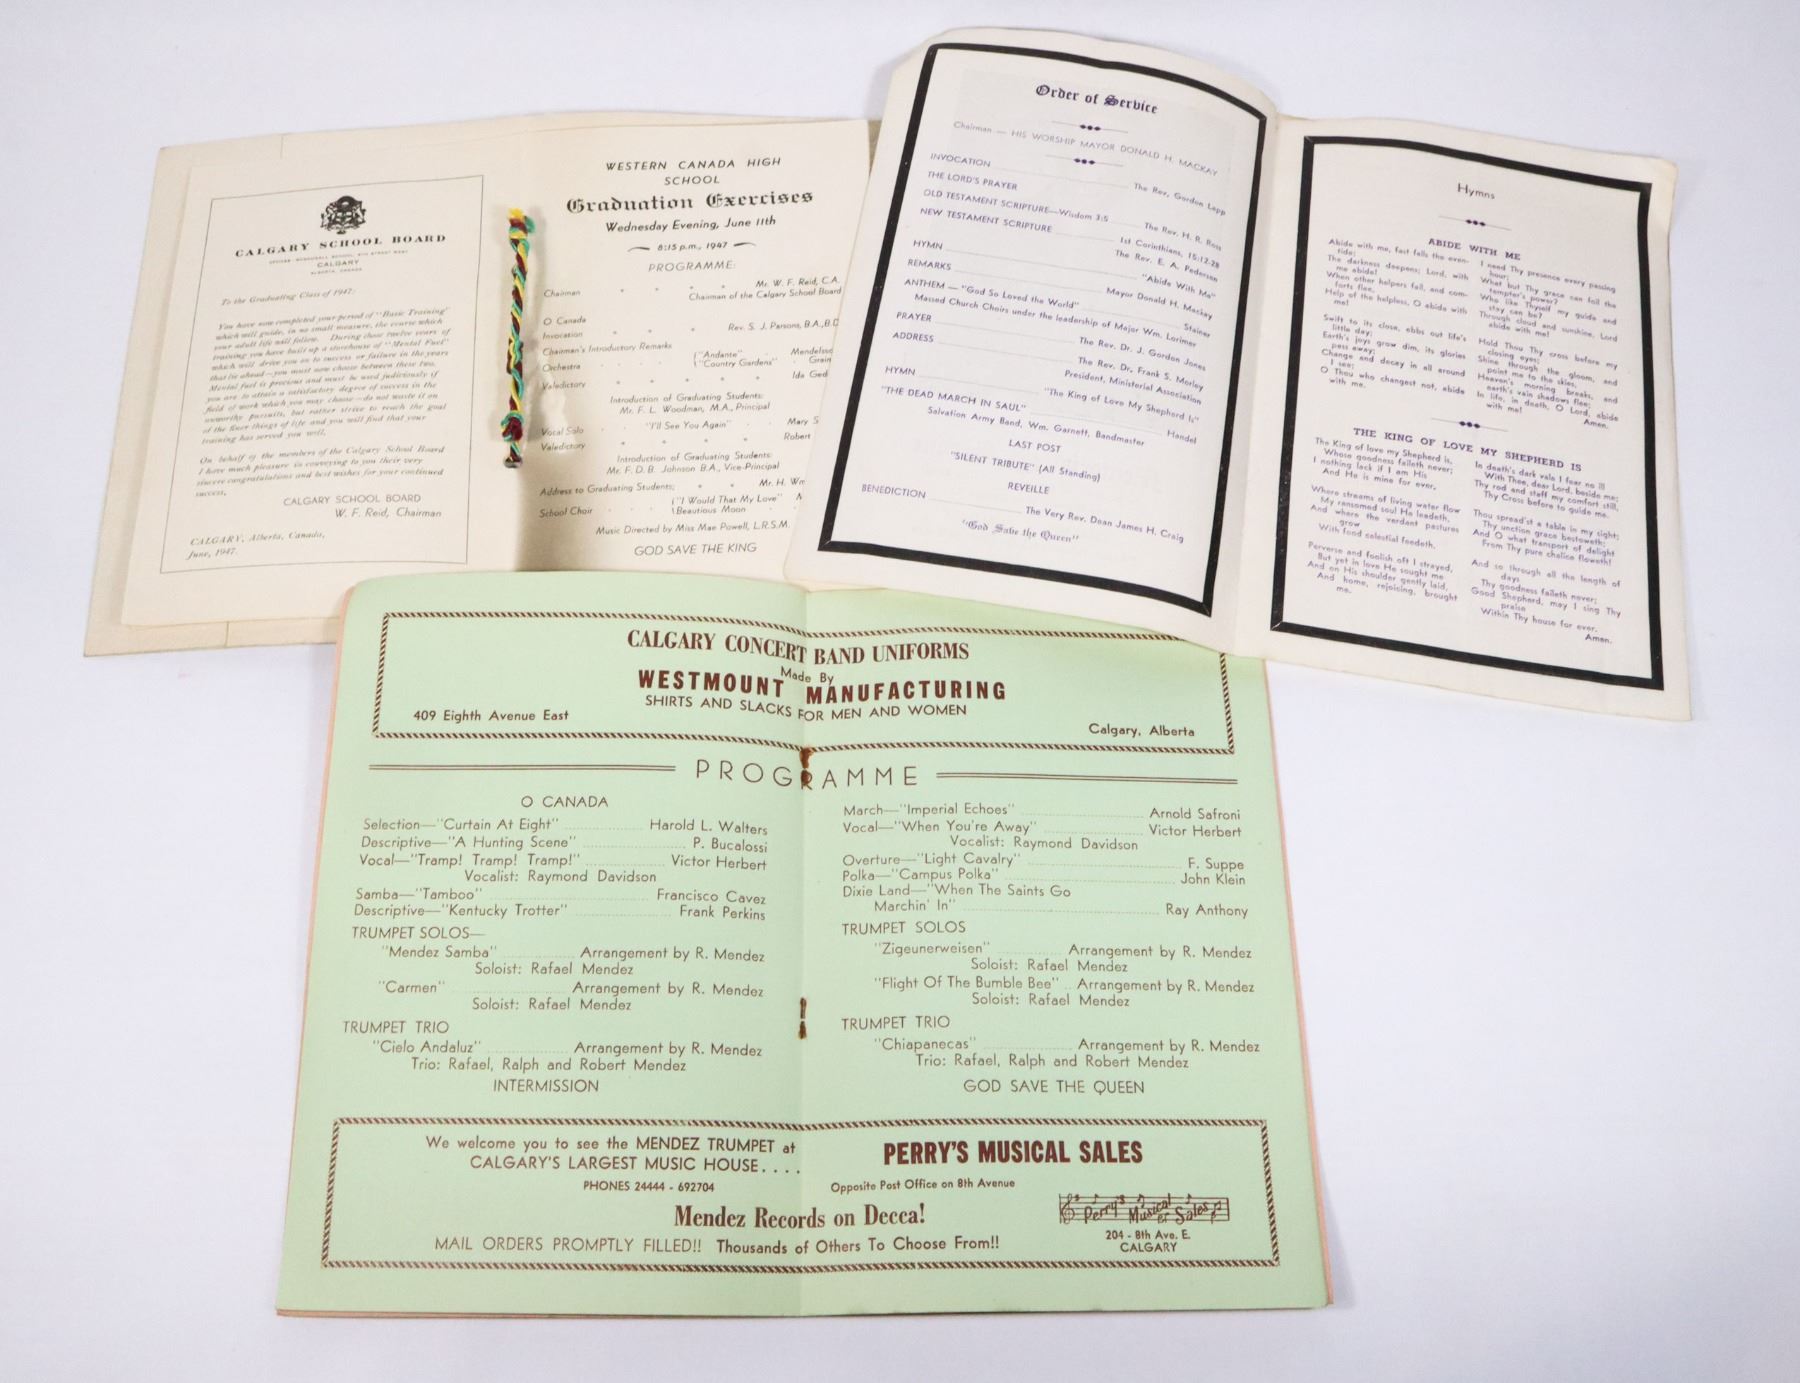 CALGARY SCHOOL BOARD
CALGARY
ALBERTA, CANADA
To the Graduating Class of 1947:
You have now completed your period of "Basic Training"
which will guide, in no small measure, the course which
your adult life will follow. During these twelve years of
training you have built up a storehouse of "Mental Fuel"
which will drive you on to success or failure in the years
that lie ahead—you must now choose between these two.
Mental fuel is precious and must be used judiciously if
you are to attain a satisfactory degree of success in the
field of work which you may choose—do not waste it on
unworthy pursuits, but rather strive to reach the goal
of the finer things of life and you will find that your
training has served you well.
On behalf of the members of the Calgary School Board
I have much pleasure in conveying to you their very
sincere congratulations and best wishes for your continued
success.
CALGARY SCHOOL BOARD
W. F. Reid, Chairman
CALGARY, Alberta, Canada,
June, 1947.
WESTERN CANADA HIGH
SCHOOL
Graduation Exercises
Wednesday Evening, June 11th
8:15 p.m., 1947
PROGRAMME:
Chairman " " " Mr. W. F. Reid, C.A.
Chairman of the Calgary School Board
O Canada
Invocation " " " Rev. S. J. Parsons, B.A., B.D
Chairman's Introductory Remarks
Orchestra ("Andante" Mendelss
("Country Gardens" Grain
Valedictory " " " " " Ida Ged
Introduction of Graduating Students:
Mr. F. L. Woodman, M.A., Principal
Vocal Solo "I'll See You Again" Mary S
Valedictory " " " " Robert
Introduction of Graduating Students:
Mr. F. D. B. Johnson B.A., Vice-Principal
Address to Graduating Students; " " Mr. H. Wm
School Choir ("I Would That My Love"
(Beautious Moon
Music Directed by Miss Mae Powell, L.R.S.M.
GOD SAVE THE KING
Order of Service
Chairman — HIS WORSHIP MAYOR DONALD H. MACKAY
INVOCATION The Rev. Gordon Lapp
THE LORD'S PRAYER
OLD TESTAMENT SCRIPTURE—Wisdom 3:5 The Rev. H. R. Ross
NEW TESTAMENT SCRIPTURE 1st Corinthians, 15:12-28
The Rev. E. A. Pedersen
HYMN "Abide With Me"
REMARKS Mayor Donald H. Mackay
ANTHEM — "God So Loved the World" Stainer
Massed Church Choirs under the leadership of Major Wm. Lorimer
PRAYER The Rev. Dr. J. Gordon Jones
ADDRESS The Rev. Dr. Frank S. Morley
President, Ministerial Association
HYMN "The King of Love My Shepherd Is"
"THE DEAD MARCH IN SAUL" Handel
Salvation Army Band, Wm. Garnett, Bandmaster
LAST POST
"SILENT TRIBUTE" (All Standing)
REVEILLE
BENEDICTION The Very Rev. Dean James H. Craig
"God Save the Queen"
Hymns
ABIDE WITH ME
Abide with me, fast falls the even-
tide;
The darkness deepens; Lord, with
me abide!
When other helpers fail, and com-
forts flee,
Help of the helpless, O abide with
me!
Swift to its close, ebbs out life's
little day;
Earth's joys grow dim, its glories
pass away;
Change and decay in all around
I see;
O Thou who changest not, abide
with me.
I need Thy presence every passing
hour;
What but Thy grace can foil the
tempter's power?
Who like Thyself my guide and
stay can be?
Through cloud and sunshine, Lord
abide with me!
Hold Thou Thy cross before my
closing eyes;
Shine through the gloom, and
point me to the skies,
Heaven's morning breaks, and
earth's vain shadows flee;
In life, in death, O Lord, abide
with me!
Amen.
THE KING OF LOVE MY SHEPHERD IS
The King of love my Shepherd is,
Whose goodness faileth never;
I nothing lack if I am His
And He is mine for ever.
Where streams of living water flow
My ransomed soul He leadeth,
And where the verdant pastures
grow
With food celestial feedeth.
Perverse and foolish oft I strayed,
But yet in love He sought me
And on His shoulder gently laid,
And home, rejoicing, brought
me.
In death's dark vale I fear no ill
With Thee, dear Lord, beside me;
Thy rod and staff my comfort still,
Thy Cross before to guide me.
Thou spread'st a table in my sight;
Thy unction grace bestoweth;
And O what transport of delight
From Thy pure chalice floweth!
And so through all the length of
days
Thy goodness faileth never;
Good Shepherd, may I sing Thy
praise
Within Thy house for ever.
Amen.
CALGARY CONCERT BAND UNIFORMS
Made By
WESTMOUNT MANUFACTURING
SHIRTS AND SLACKS FOR MEN AND WOMEN
409 Eighth Avenue East Calgary, Alberta
PROGRAMME
O CANADA
Selection—"Curtain At Eight" Harold L. Walters
Descriptive—"A Hunting Scene" P. Bucalossi
Vocal—"Tramp! Tramp! Tramp!" Victor Herbert
Vocalist: Raymond Davidson
Samba—"Tamboo" Francisco Cavez
Descriptive—"Kentucky Trotter" Frank Perkins
TRUMPET SOLOS—
"Mendez Samba" Arrangement by R. Mendez
Soloist: Rafael Mendez
"Carmen" Arrangement by R. Mendez
Soloist: Rafael Mendez
TRUMPET TRIO
"Cielo Andaluz" Arrangement by R. Mendez
Trio: Rafael, Ralph and Robert Mendez
INTERMISSION
March—"Imperial Echoes" Arnold Safroni
Vocal—"When You're Away" Victor Herbert
Vocalist: Raymond Davidson
Overture—"Light Cavalry" F. Suppe
Polka—"Campus Polka" John Klein
Dixie Land—"When The Saints Go
Marchin' In" Ray Anthony
TRUMPET SOLOS
"Zigeunerweisen" Arrangement by R. Mendez
Soloist: Rafael Mendez
"Flight Of The Bumble Bee" Arrangement by R. Mendez
Soloist: Rafael Mendez
TRUMPET TRIO
"Chiapanecas" Arrangement by R. Mendez
Trio: Rafael, Ralph and Robert Mendez
GOD SAVE THE QUEEN
We welcome you to see the MENDEZ TRUMPET at
CALGARY'S LARGEST MUSIC HOUSE....
PHONES 24444 - 692704
PERRY'S MUSICAL SALES
Opposite Post Office on 8th Avenue
Mendez Records on Decca!
MAIL ORDERS PROMPTLY FILLED!! Thousands of Others To Choose From!!
Perry's Musical Sales
204 - 8th Ave. E.
CALGARY